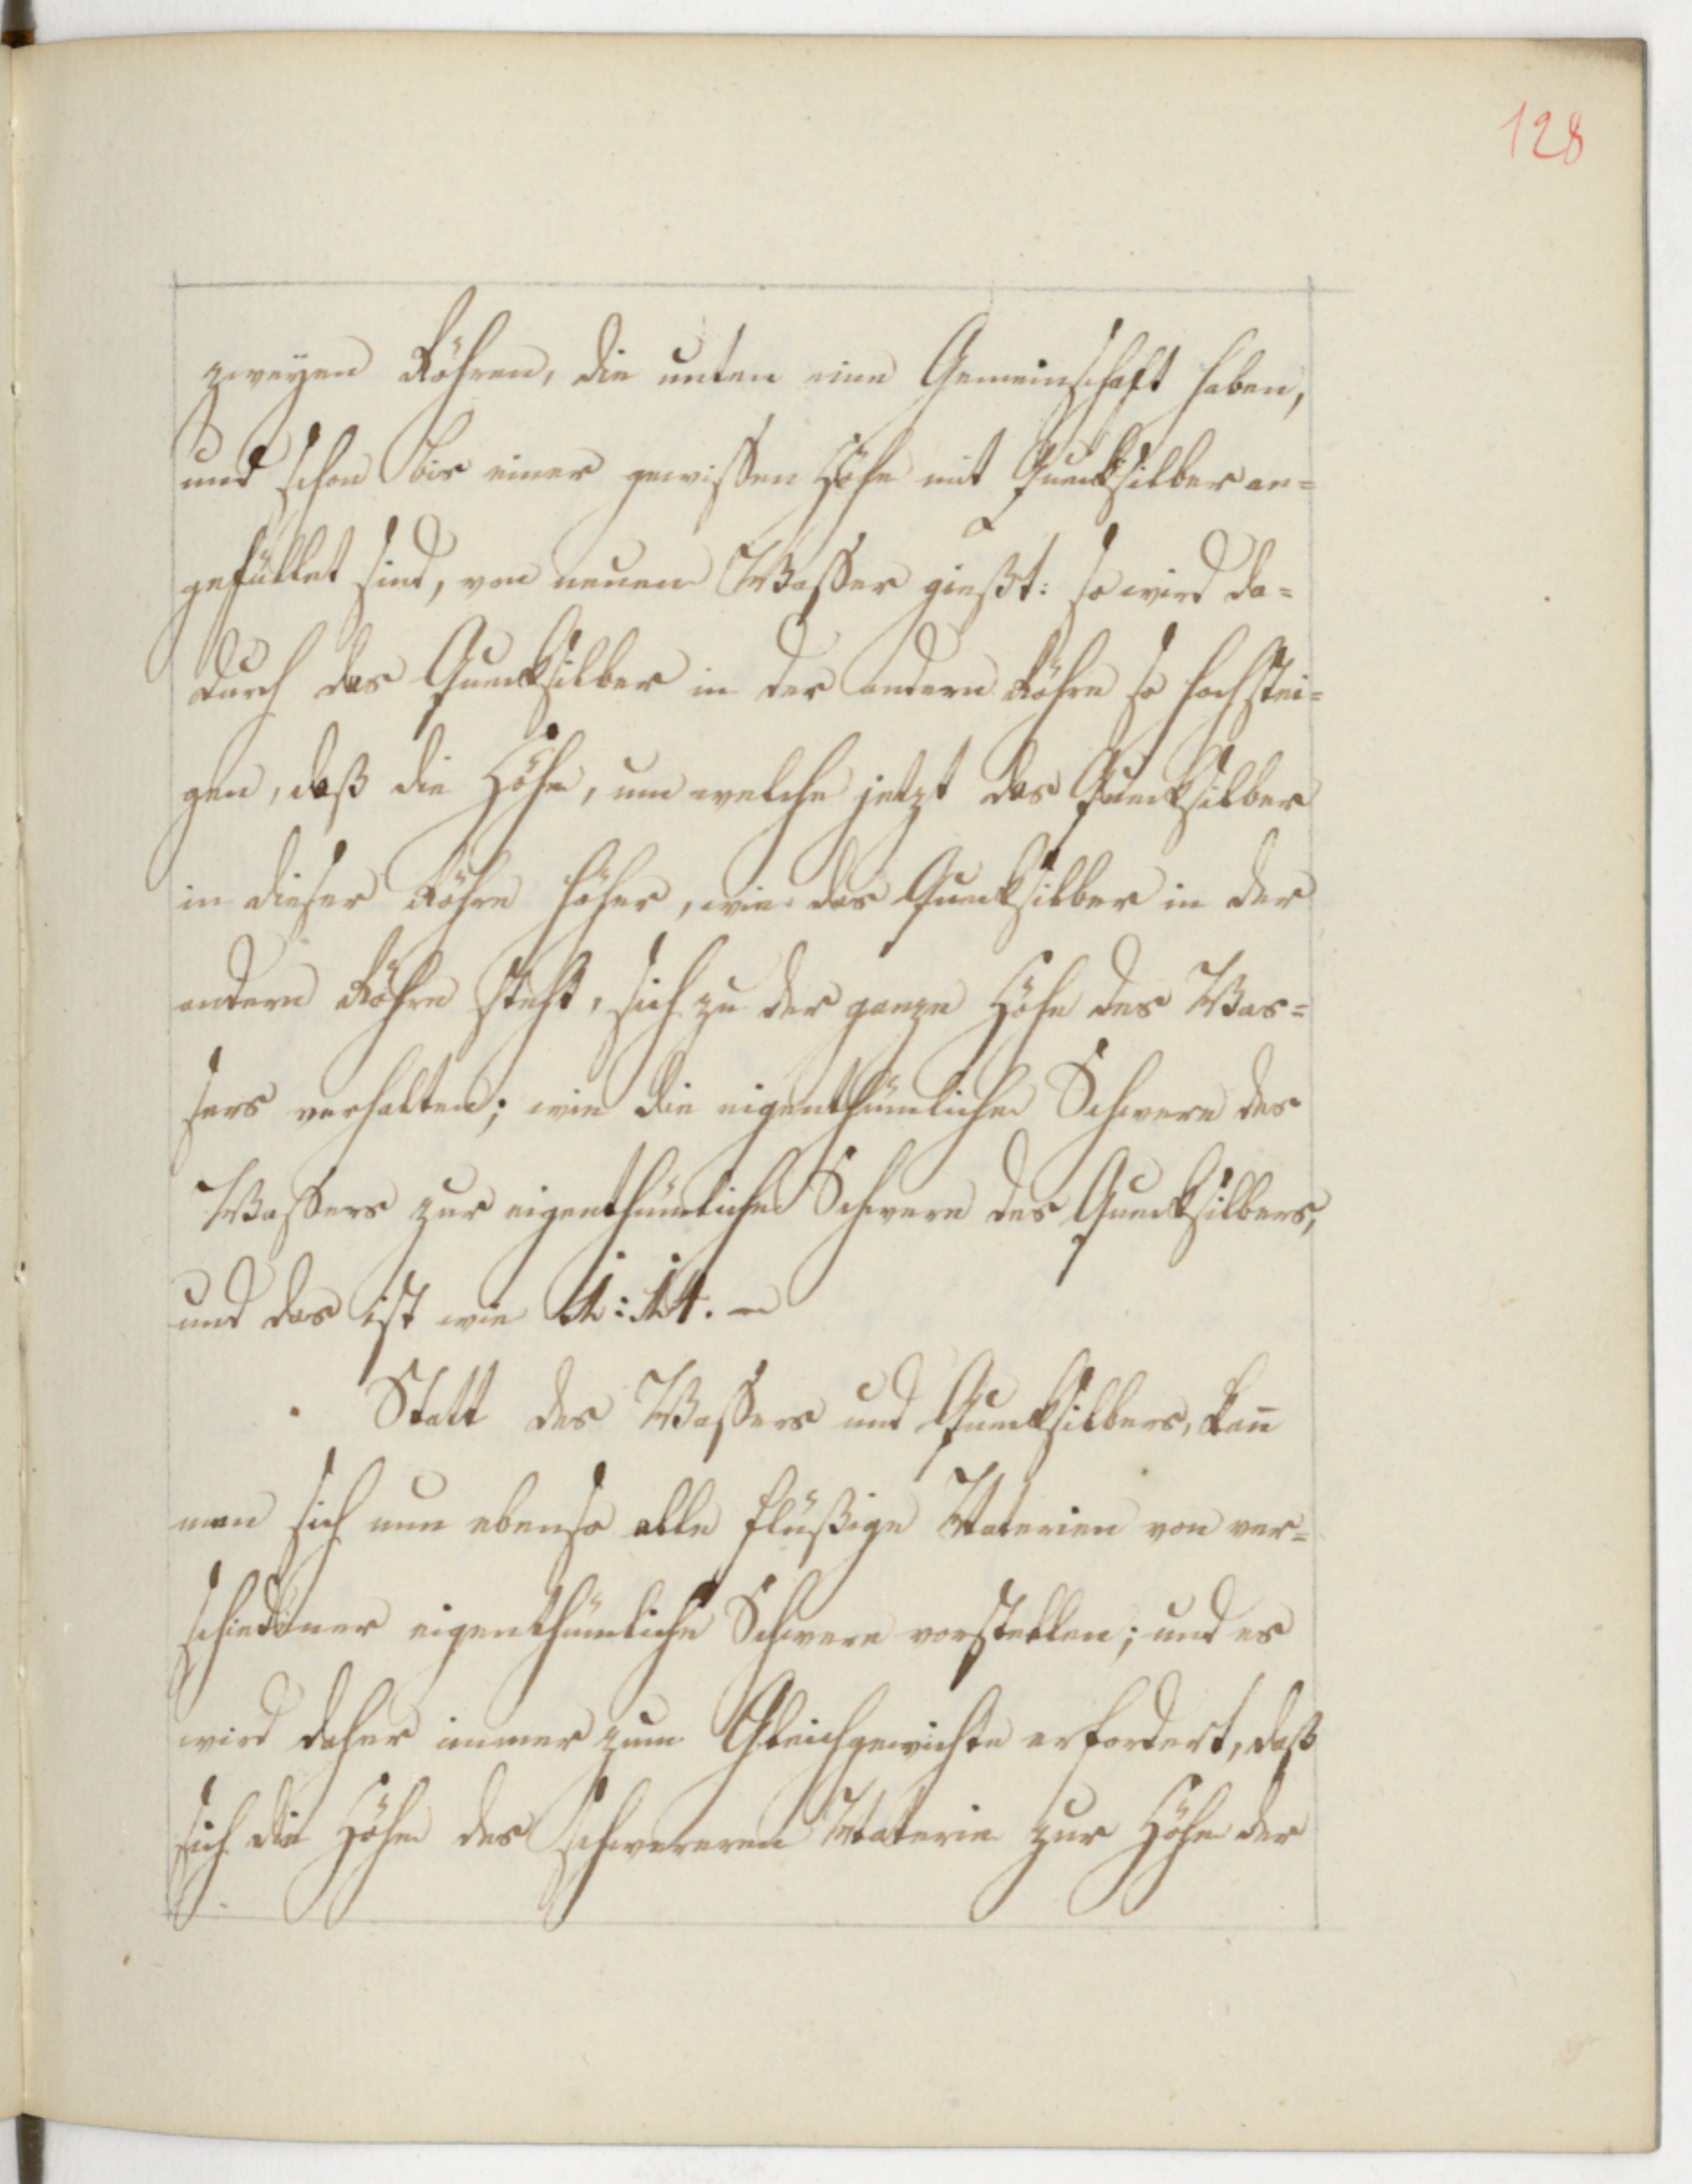 128
zweyen Röhren, die unten eine Gemeinschaft haben,
und schon bis einer gewissen Höhe mit Quecksilber an=
gefüllet sind, von neuem Wasser gießt: so wird da=
durch das Quecksilber in der andern Röhre so hoch stei=
gen, daß die Höhe, um welche jetzt das Quecksilber
in dieser Röhre höher, wie das Quecksilber in der
andern Röhre steht, sich zu der ganze Höhe des Was=
sers verhalten; wie die eigenthümliche Schwere des
Wassers zur eigenthümliche Schwere des Quecksilbers,
und das ist wie 1:14. –
Statt des Wassers und Quecksilbers, kan̄
man sich nun ebenso alle flüßige Materien von ver=
schiedener eigenthümliche Schwere vorstellen; und es
wird daher immer zum Gleichgewichte erfordert, daß
sich die Höhe des schwereren Materie zur Höhe der